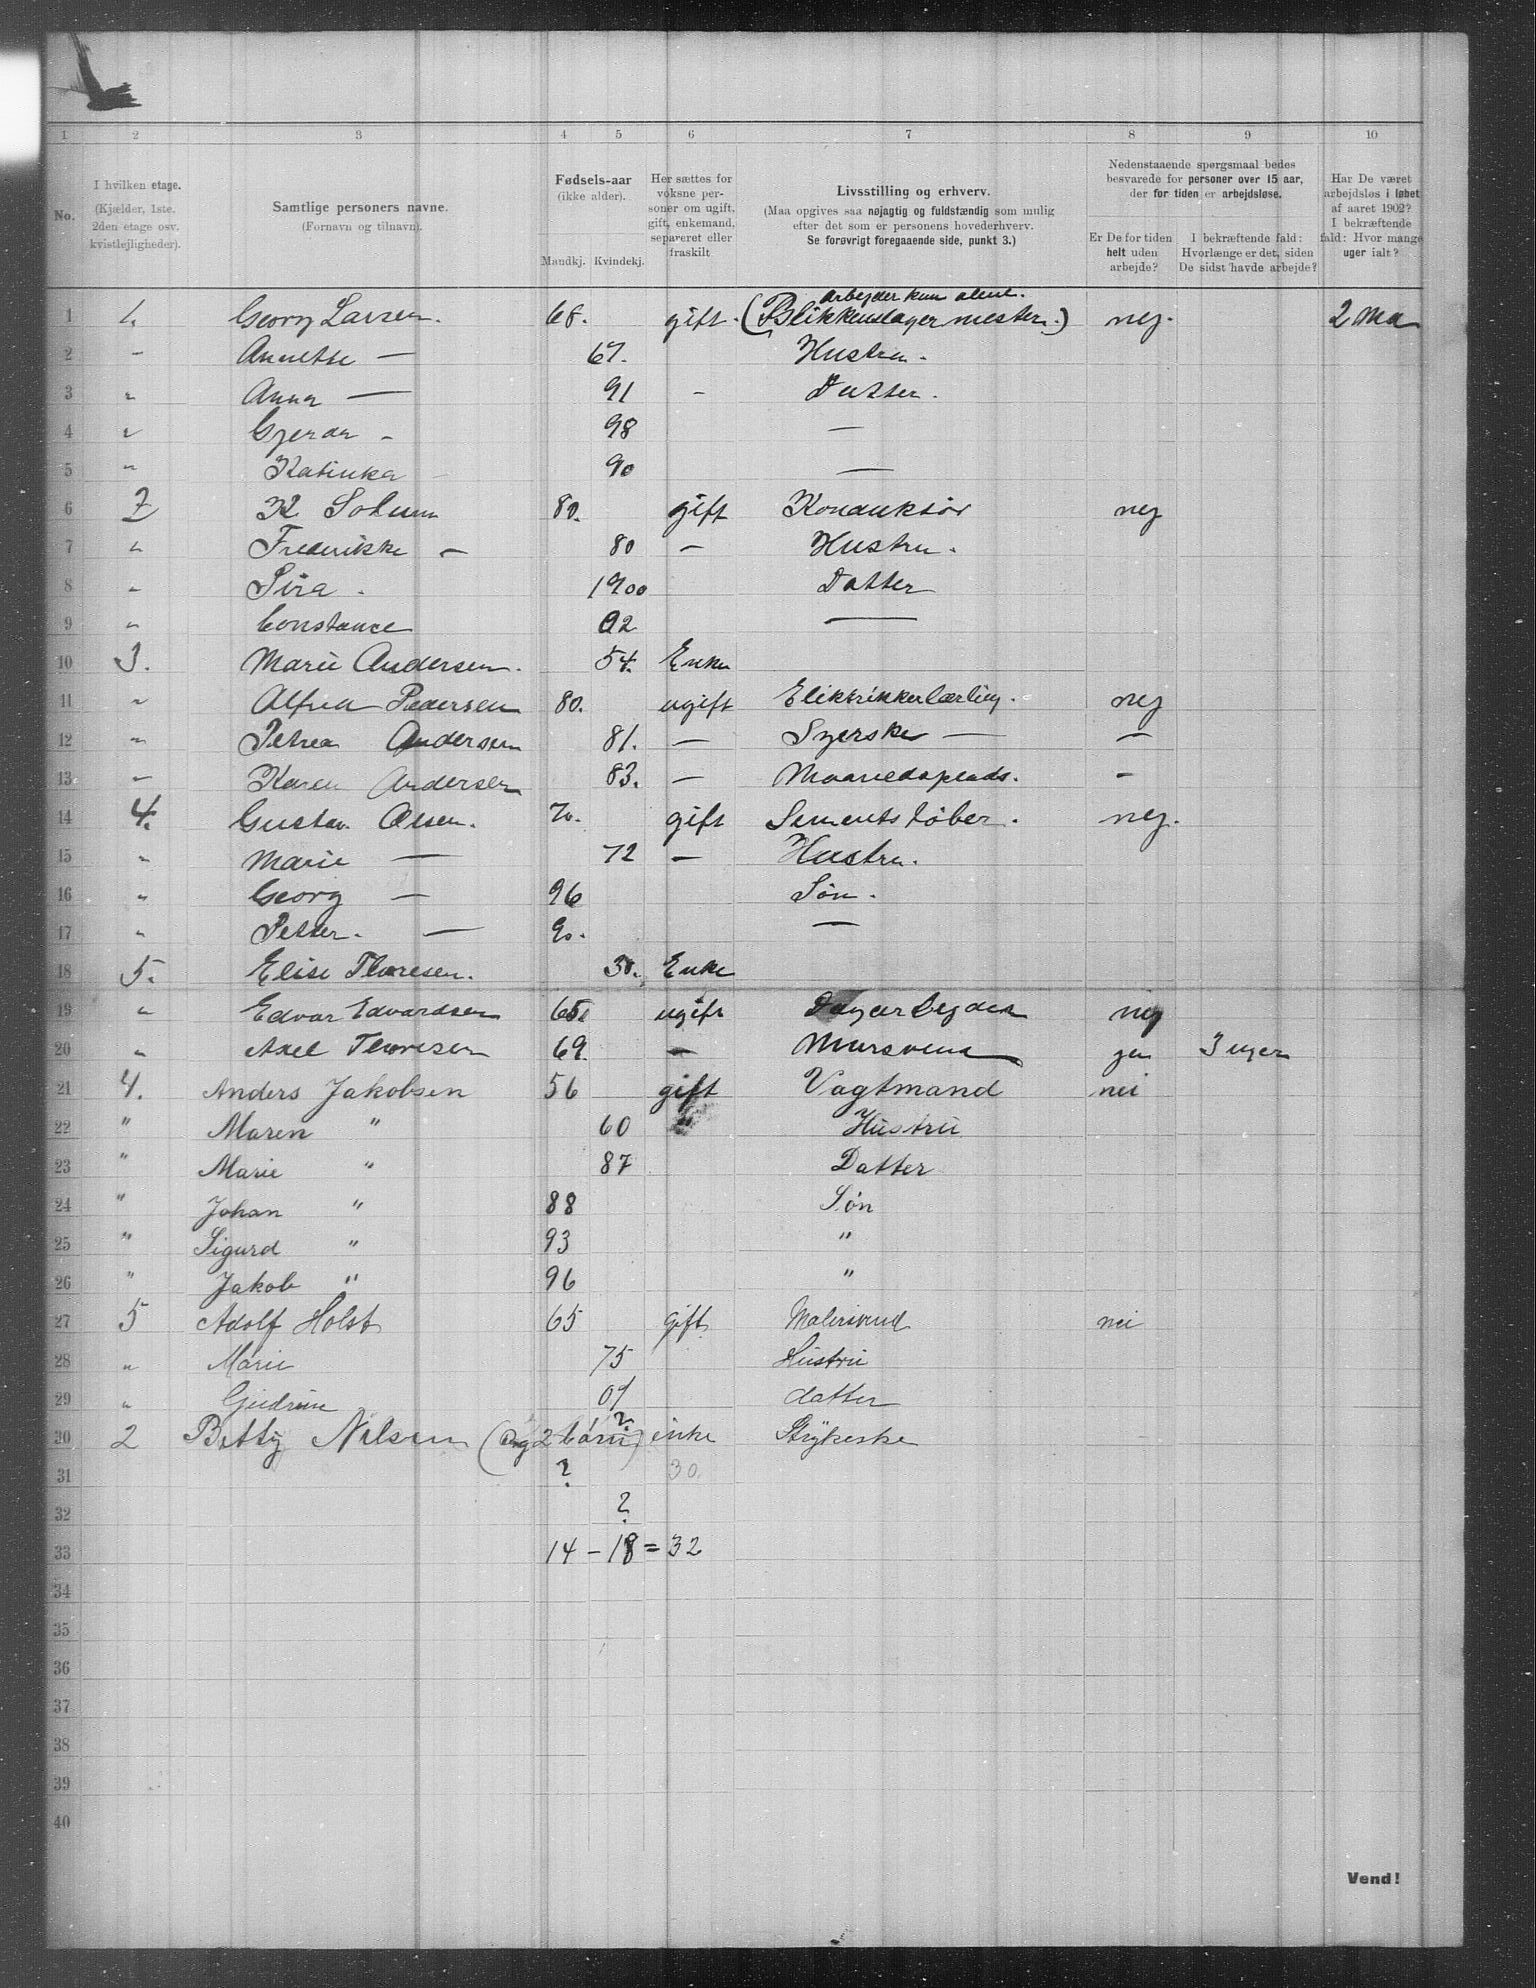 1 2 3 4 5 6 7 8 9 10
No.
I hvilken etage.
(Kjælder, 1ste.
2den etage osv.
kvistlejligheder).
Samtlige personers navne.
(Fornavn og tilnavn).
Fødsels-aar
(ikke alder).
Mandkj. Kvindekj.
Her sættes for
voksne per-
soner om ugift,
gift, enkemand,
separeret eller
fraskilt
Livsstilling og erhverv.
(Maa opgives saa nøjagtig og fuldstændig som mulig
efter det som er personens hovederhverv.
Se forøvrigt foregaaende side, punkt 3.)
Nedenstaaende spørgsmaal bedes
besvarede for personer over 15 aar,
der for tiden er arbejdsløse.
Er De for tiden
helt uden
arbejde?
I bekræftende fald:
Hvorlænge er det, siden
De sidst havde arbejde?
Har De været
arbejdsløs i løbet
af aaret 1902?
I bekræftende
fald: Hvor mange
uger ialt?
arbejder kun alene.
1 1. Georg Larsen. 68. gift. (Blikkenslagermester.) nej. 2 Ma
2 " Annette — 67. Hustru.
3 " Anna — 91 - Datter.
4 " Gjerda - 98 —
5 " Katinka 90 —
6 2 Kl Solum 80. gift Konduktör nej
7 " Frederikke — 80 — Hustru.
8 " 1900 Datter
9 " Constance 02 —
10 3. Marie Andersen. 54. Enke
11 " Alfred Pedersen 80. ugift Elektrikkerlærling. nej
12 " Petrea Andersen 81. — Syerske — —
13 " Karen Andersen 83. — Maanedsplads. -
14 4. Gustav Olsen. 70. gift Sementstøber. nej.
15 " Marie — 72 — Hustru.
16 " Georg — 96 Søn.
17 " Petter. — 90. —
18 5. Elise Thoresen. 30. Enke
19 " Edvar Edvardsen 65. ugift Dagarbejder nej
20 " Axel Thoresen 69. — Mursvend ja 3 uger
21 4. Anders Jakobsen 56 gift Vagtmand nei
22 " Maren " 60 " Hustru
23 " Marie " 87 Datter
24 " Johan " 88 Søn
25 " Sigurd " 93 "
26 " Jakob " 96 "
27 5 Adolf Holst 65 gift Malersvend nei
28 " Marie 75 Hustru
29 " Gudrun 01 datter
30 2 Betty Nilsen (og 2 børn) ? enke Strykerske
31 ? 30.
32 ?
33 14 - 18 = 32
34
35
36
37
38
39
40
Vend!